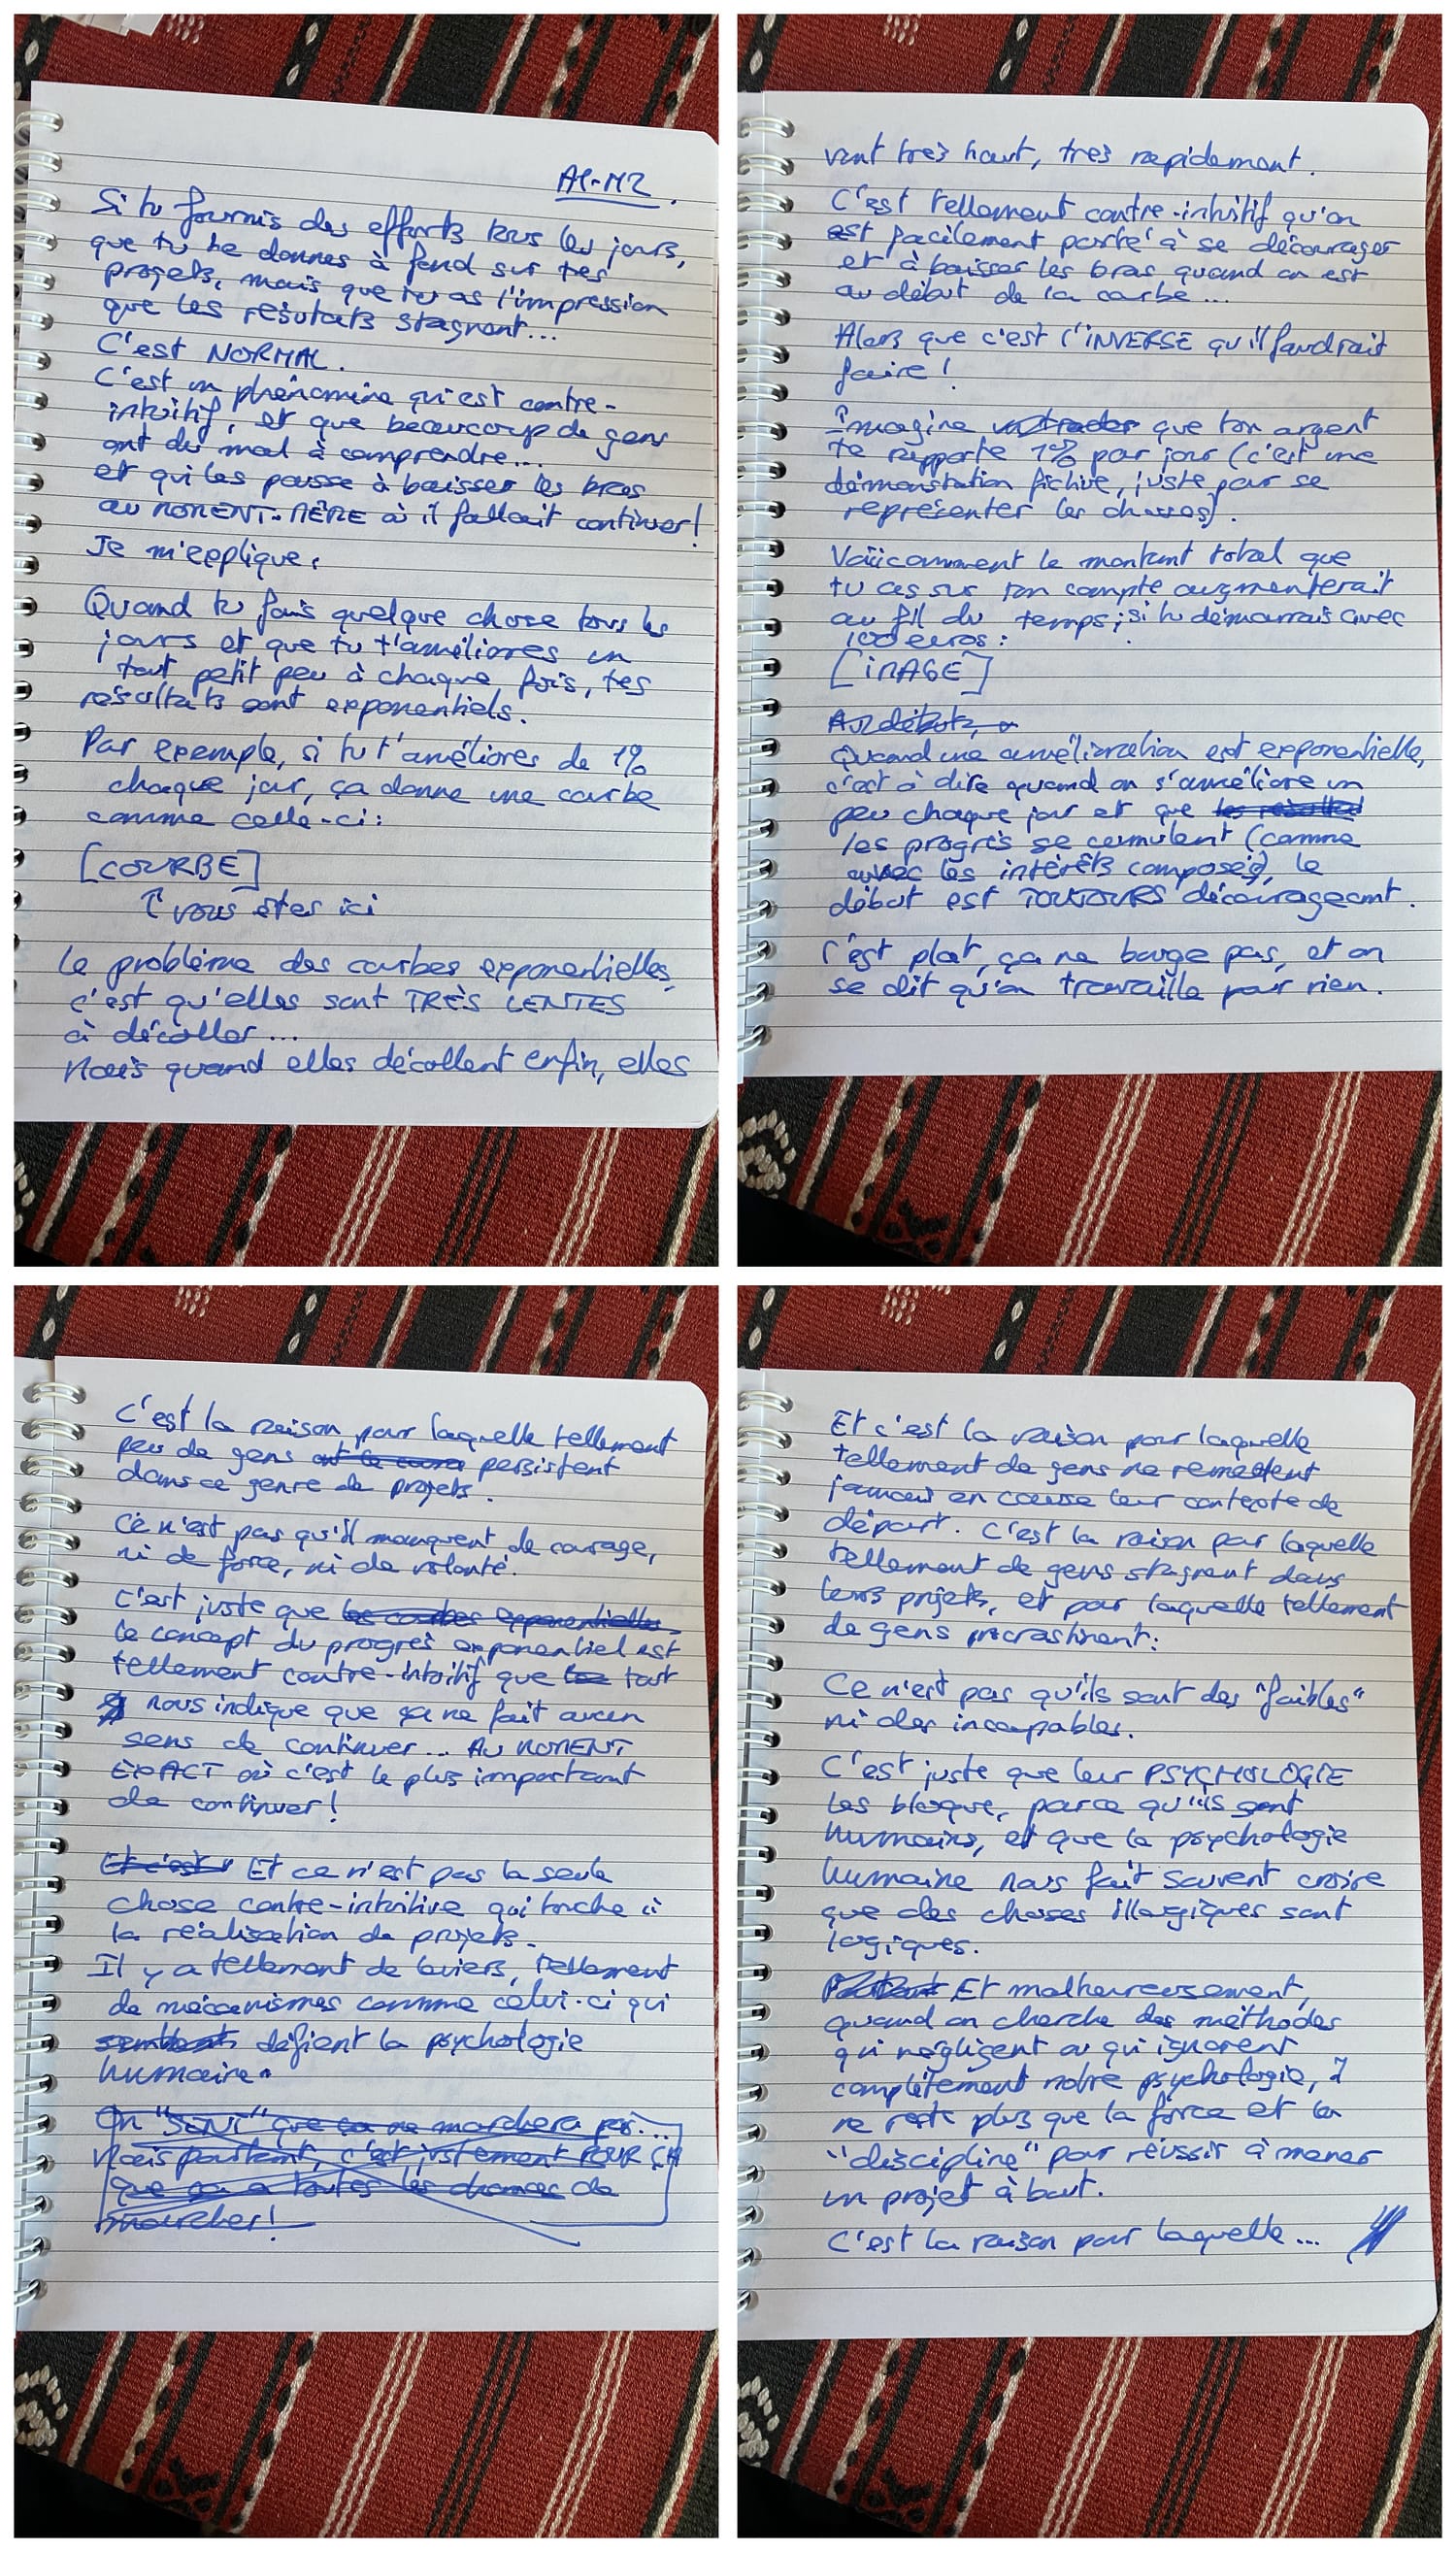 AC-M2.
Si tu fournis des efforts tous les jours,
que tu te donnes à fond sur tes
projets, mais que tu as l'impression
que les résultats stagnent...
C'est NORMAL.
C'est un phénomène qui est contre-
intuitif, et que beaucoup de gens
ont du mal à comprendre...
et qui les pousse à baisser les bras
au MOMENT-MÊME où il fallait continuer!
Je m'explique:
Quand tu fais quelque chose tous les
jours et que tu t'améliores un
tout petit peu à chaque fois, tes
résultats sont exponentiels.
Par exemple, si tu t'améliores de 1%
chaque jour, ça donne une courbe
comme celle-ci:
[COURBE]
↑ vous êtes ici
Le problème des courbes exponentielles,
c'est qu'elles sont TRÈS LENTES
à décoller...
Mais quand elles décollent enfin, elles
vont très haut, très rapidement.
C'est tellement contre-intuitif qu'on
est facilement porté à se décourager
et à baisser les bras quand on est
au début de la courbe...
Alors que c'est l'INVERSE qu'il faudrait
faire!
Imagine que ton argent
te rapporte 1% par jour (c'est une
démonstration fictive, juste pour se
représenter les choses).
Voici comment le montant total que
tu as sur ton compte augmenterait
au fil du temps, si tu démarrais avec
100 euros:
[IMAGE]
Au début,
Quand une amélioration est exponentielle,
c'est à dire quand on s'améliore un
peu chaque jour et que les résultats
les progrès se cumulent (comme
avec les intérêts composés), le
début est TOUJOURS décourageant.
C'est plat, ça ne bouge pas, et on
se dit qu'on travaille pour rien.
C'est la raison pour laquelle tellement
peu de gens persistent
dans ce genre de projets.
Ce n'est pas qu'il manquent de courage,
ni de force, ni de volonté.
C'est juste que les courbes exponentielles
le concept du progrès exponentiel est
tellement contre-intuitif que tout
nous indique que ça ne fait aucun
sens de continuer... AU MOMENT
EXACT où c'est le plus important
de continuer!
Et c'est Et ce n'est pas la seule
chose contre-intuitive qui touche à
la réalisation de projets.
Il y a tellement de leviers, tellement
de mécanismes comme celui-ci qui
semblent défient la psychologie
humaine.
On "SENT" que ça ne marchera pas...
Mais pourtant, c'est justement POUR ÇA
que ça a toutes les chances de
marcher!
Et c'est la raison pour laquelle
tellement de gens ne remettent
jamais en cause leur contexte de
départ. C'est la raison par laquelle
tellement de gens stagnent dans
leurs projets, et pour laquelle tellement
de gens procrastinent:
Ce n'est pas qu'ils sont des "faibles"
ni des incapables.
C'est juste que leur PSYCHOLOGIE
les bloque, parce qu'ils sont
humains, et que la psychologie
humaine nous fait souvent croire
que des choses illogiques sont
logiques.
Pourtant Et malheureusement,
quand on cherche des méthodes
qui négligent ou qui ignorent
complètement notre psychologie, il
ne reste plus que la force et la
"discipline" pour réussir à mener
un projet à bout.
C'est la raison pour laquelle...